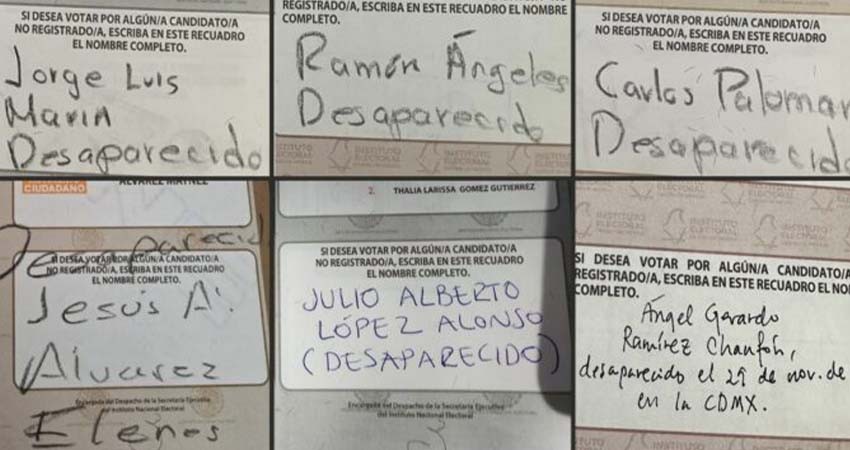 SI DESEA VOTAR POR ALGÚN/A CANDIDATO/A
NO REGISTRADO/A, ESCRIBA EN ESTE RECUADRO
EL NOMBRE COMPLETO.
Jorge Luis
Marin
Desaparecido
REGISTRADO/A, ESCRIBA EN ESTE RECUADRO EL NOMBRE
COMPLETO.
Ramón Ángeles
Desaparecido
INSTITUTO
ELECTORAL
SI DESEA VOTAR POR ALGÚN/A CANDIDATO/A
NO REGISTRADO/A, ESCRIBA EN ESTE RECUADRO
EL NOMBRE COMPLETO.
Carlos Palomar
Desaparecido
CIUDADANO
ALVAREZ MAYNEZ
Desaparecid
SI DESEA VOTAR POR ALGÚN/A CANDIDATO/A
NO REGISTRADO/A, ESCRIBA EN ESTE RECUADRO
EL NOMBRE COMPLETO.
Jesús A.
Alvarez
Elenes
Encargada del Despacho de la Secretaría Ejecutiva
del Instituto Nacional Electoral
2. THALIA LARISSA GOMEZ GUTIERREZ
SI DESEA VOTAR POR ALGÚN/A CANDIDATO/A
NO REGISTRADO/A, ESCRIBA EN ESTE RECUADRO
EL NOMBRE COMPLETO.
JULIO ALBERTO
LÓPEZ ALONSO
(DESAPARECIDO)
Encargada del Despacho de la Secretaría Ejecutiva
del Instituto Nacional Electoral
INSTITUTO
ELECTORAL
SI DESEA VOTAR POR ALGÚN/A CANDIDATO/A
REGISTRADO/A, ESCRIBA EN ESTE RECUADRO EL NO
COMPLETO.
Ángel Gerardo
Ramírez Chaufón,
desaparecido el 29 de nov. de
en la CDMX.